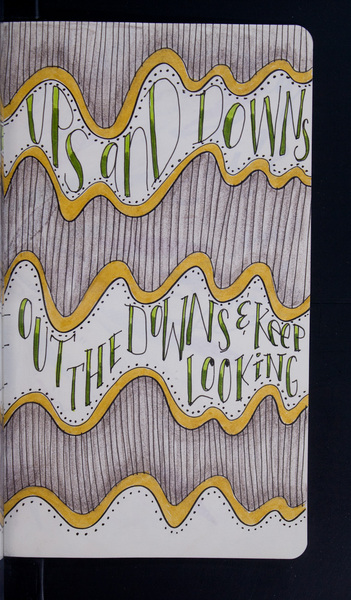 UPS anD DOWNS
OUT THE DOWNS & KEEP
LOOKiNG